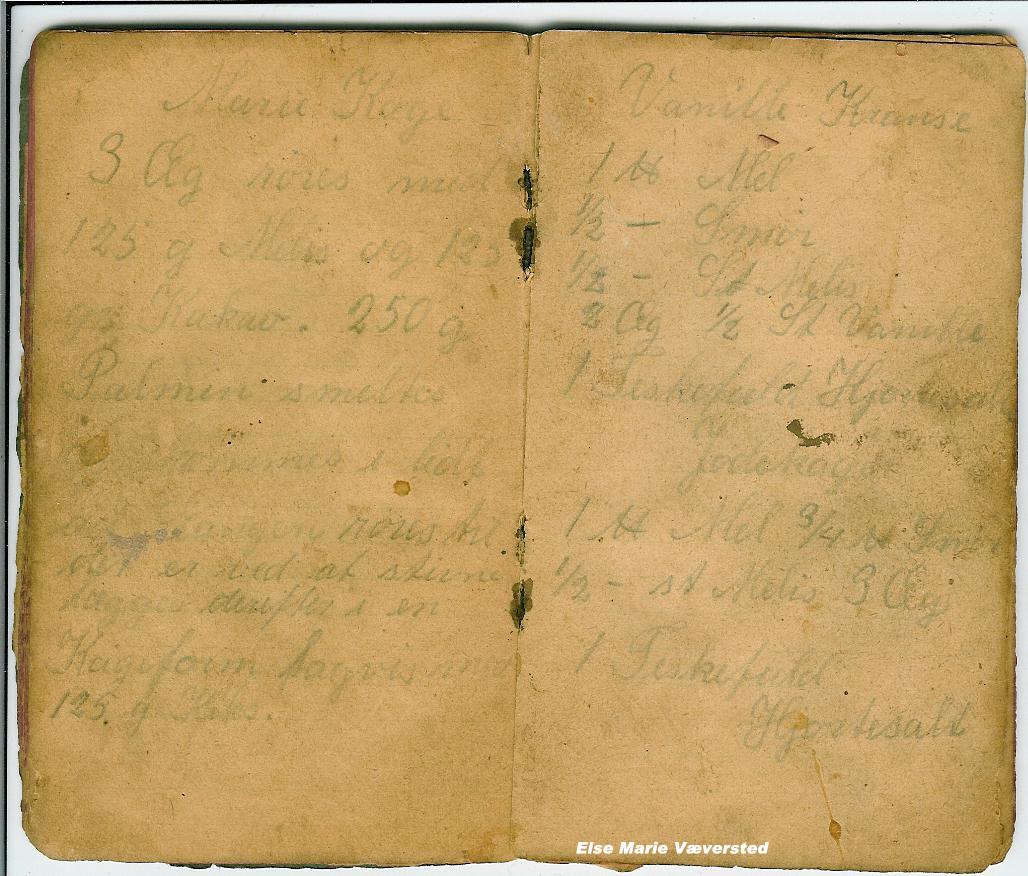 Marie Kage
3 Æg röres med
125 g Melis og 125
gr Kakao. 250 g
Palmin smeltes
kommes i lidt
rören röres til
det er ved at stivne
lægges derefter i en
Kageform lagvis med
125 g Keks.
Vanille Kranse
1 ℔ Mel
1/2 — Smör
1/2 - St Melis
2 Æg 1/2 St Vanille
1 Teskefuld Hjortesalt
Jödekager
1 ℔ Mel 3/4 ℔ Smör
1/2 - st Melis 3 Æg
1 Teskefuld
Hjortesalt
Else Marie Væversted